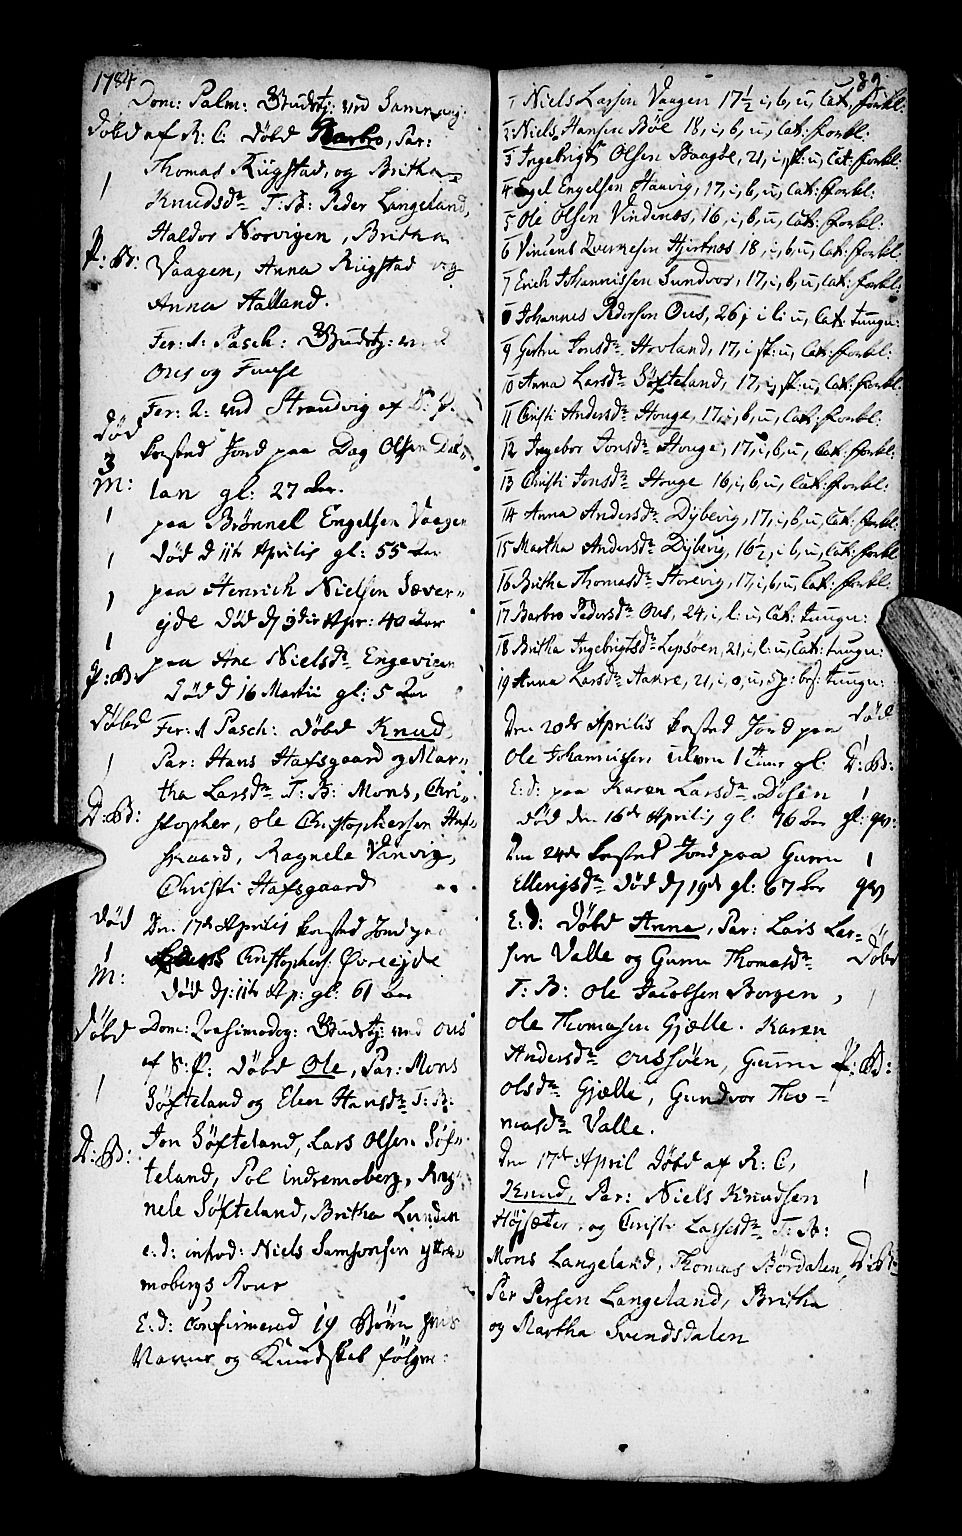 1784
Dom: Palm: Gudstj: ved Samnang:
Døbd af R: C: Døbd Barbro, Par:
Thomas Riigstad, og Britha
1 Knudsdr T: B: Peder Langeland,
Haldor Norvigen, Britha
P: B: Vaagen, Anna Riigstad og
Anna Hälland.
Fer: 1: Pasch: Gudstj: ved
Ous og Fuuse
Fer: 2: ved Strandvig af D: P.
Død kasted Jord paa Dag Olsen Dal-
3 M: lan gl: 27 Aar.
1 paa Brønnel Engelsen Vaagen
1 Død d 11te Aprilis gl: 55 Aar
1 paa Henrich Nielsen Sæver-
ejde Død d 3die Apr: 40 Aar
1 paa Ane Nielsdr Engevigen
P: B: Død d 16 Martii gl: 5 Aar
Døbd Fer: 1 Pasch: Døbd Knud,
1 Par: Hans Hafsgaard og Mar-
tha Larsdr T: B: Mons, Chri-
D: B: stopher, Ole Christophersen Hafs
gaard, Ragnele Vanvig,
Christi Hafsgaard
Død Den 17de Aprilis kasted Jord paa
1 Christophers: Øvreejde
M: Død d: 11te Ap: gl: 61 Aar
Døbd Dom: Qvasimodog: Gudstj: ved Ous
af S: P: Døbd Ole, Par: Mons
1 Søfteland og Elen Hansdr T: B:
D: B: Jon Søfteland, Lars Olsen Søf-
teland, Pol indremoberg, Rag-
nele Søfteland, Britha Lunden
e: d: introd: Niels Samsonsen yttre-
mobergs Kone
E: d: Confirmered 19 Børn hvis
Navne og Kundskab følger:
89.
1 Niels Larsen Vaagen 17½ i, b, u, Cat: forkl:
2 Niels Hansen Bøe 18, i, b, u, Cat: forkl:
3 Ingebrigt Olsen Baagøe, 21, i, sk: u, Cat: forkl:
4 Engel Engelsen Haavig, 17, i, b, u, Cat: forkl:
5 Ole Olsen Vindenes, 16, i, b, u, Cat: forkl:
6 Vincens Qvernesen Hjertnæs 18, i, b, u, Cat: forkl:
7 Erich Johannissen Sundvor, 17, i, b, u, Cat: forkl:
8 Johannes Pedersen Ous, 26, i l: u, Cat: tungn:
9 Gertru Jonsdr Hovland, 17, i sk: u, Cat: forkl:
10 Anna Larsdr Søfteland, 17, i, sk: u, Cat: forkl:
11 Christi Andersdr Houge, 17, i, b, u, Cat: forkl:
12 Ingebor Jonsdr Houge, 17, i, b, u, Cat: forkl:
13 Christi Jonsdr Houge 16, i, b, u, Cat: forkl:
14 Anna Andersdr Dybevig, 17, i, b, u, Cat: forkl:
15 Martha Andersdr Dybevig, 16½, i, b, u, Cat: forkl
16 Britha Thomasdr Storevig, 17, i, b, u, Cat: forkl
17 Barbro Pedersdr Ous, 24, i, l: u, Cat: tungn:
18 Britha Ingebrigtsdr Lepsøen, 21, i, l: u, Cat: tungn:
19 Anna Larsdr Aakre, 21, i, o, u, Sp: bes: tungn:
Den 20de Aprilis kasted Jord paa Død
Ole Johannissen 1 gl: 1
E: d: paa Karen Larsdr Døsen D: B:
Død den 16de Aprilis gl: 76 Aar gl: qv:
Den 24de kasted Jord paa Guru 1
Ellingsdr Død d 19de gl: 67 Aar qv
E: d: Døbd Anna, Par: Lars Lar-
sen Valle og Guru Thomasdr Døbd
T: B: Ole Jacobsen Borgen, 1
Ole Thomasen Gjælle. Karen
Andersdr Oussøen, Guru P: B:
Olsdr Gjælle, Gundvor Tho-
masdr Valle.
Den 17de April Døbd af R: C,
Knud, Par: Niels Knudsen 1
Højsæter, og Christi Lassesdr T: B:
Mons Langeland, Thomas Børdalen, D: B:
Per Persen Langeland, Britha
og Martha Svendsdalen